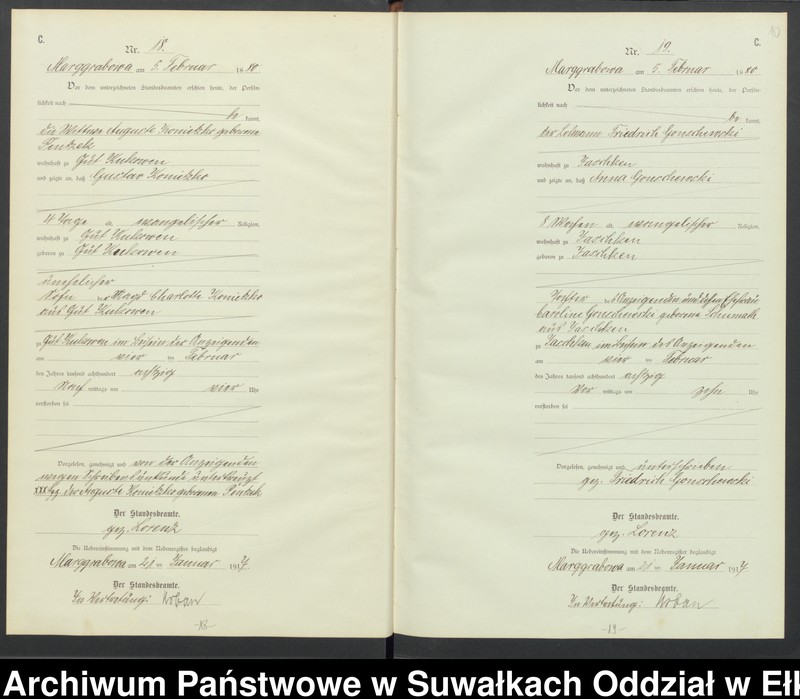 C.
Nr. 18.
Marggrabowa am 5. Februar 1880
Vor dem unterzeichneten Standesbeamten erschien heute, der Persön-
lichkeit nach
be kannt,
die Wittwe Auguste Konietzko geborene
wohnhaft zu Gut Kukowen
und zeigte an, daß Gustav Konietzko
4 Tage alt, evangelischer Religion,
wohnhaft zu Gut Kukowen
geboren zu Gut Kukowen
unehelicher
Sohn der Magd Charlotte Konietzko
aus Gut Kukowen
zu Gut Kukowen im Hause der Anzeigenden
am vier ten Februar
des Jahres tausend achthundert achtzig
Nach mittags um vier Uhr
verstorben sei
Vorgelesen, genehmigt und von der Anzeigenden
wegen Schreibensunkunde unterkreuzt
XXX hz. der Auguste Konietzko geborenen
Der Standesbeamte.
gez. Lorenz
Die Uebereinstimmung mit dem Nebenregister beglaubigt
Marggrabowa am ten Januar 1917
Der Standesbeamte.
In Vertretung: Urban
-18-
C.
Nr. 19.
Marggrabowa am 5. Februar 1880
Vor dem unterzeichneten Standesbeamten erschien heute, der Persön-
lichkeit nach
be kannt,
der Losmann Friedrich Gonschewski
wohnhaft zu Jaschken
und zeigte an, daß Anna Gonschewski
8 Wochen alt, evangelischer Religion,
wohnhaft zu Jaschken
geboren zu Jaschken
Tochter des Anzeigenden und dessen Ehefrau
Caroline Gonschewski geborene
aus Jaschken
zu Jaschken im Hause des Anzeigenden
am vier ten Februar
des Jahres tausend achthundert achtzig
Vor mittags um zehn Uhr
verstorben sei
Vorgelesen, genehmigt und unterschrieben
gez. Friedrich Gonschewski
Der Standesbeamte.
gez. Lorenz
Die Uebereinstimmung mit dem Nebenregister beglaubigt
Marggrabowa am ten Januar 1917
Der Standesbeamte.
In Vertretung: Urban
-19-
Archiwum Państwowe w Suwałkach Oddział w Eł